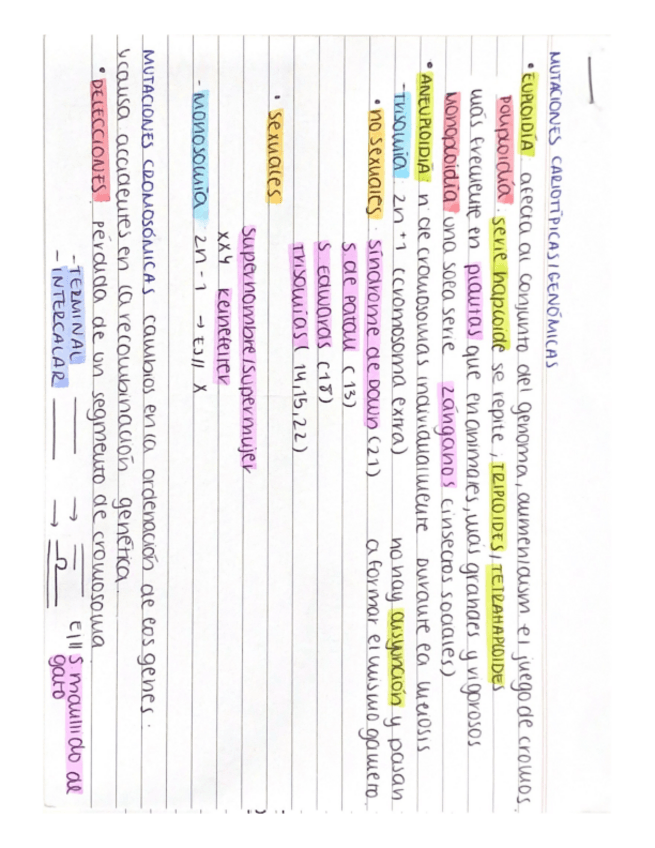 MUTACIONES CARIOTÍPICAS/GENÓMICAS
• EUPLOIDÍA afecta al conjunto del genoma, aumen/dism el juego de cromos.
POLIPLOIDÍA: serie haploide se repite, TRIPLOIDES/TETRAHAPLOIDES
más frecuente en plantas que en animales, más grandes y vigorosos
Monoploidía una sola serie zánganos (insectos sociales)
• ANEUPLOIDIA: nº de cromosomas individualmente Durante la meiosis
-Trisomía: 2n+1 (cromosoma extra) no hay disyunción y pasan
• no sexuales: Síndrome de Down (21) a formar el mismo gameto.
S. de Patau (13)
S. Edwards (18)
Trisomías (14,15,22)
• sexuales
Superhombre/Supermujer
XXY Keinefelter
- Monosomía: 2n-1 → Ej// X
MUTACIONES CROMOSÓNICAS cambios en la ordenación de los genes.
y causa accidentes en la recombinación genética.
• DELECCIONES: pérdida de un segmento de cromosoma
- TERMINAL → Ej// S. maullido de
- INTERCALAR → gato